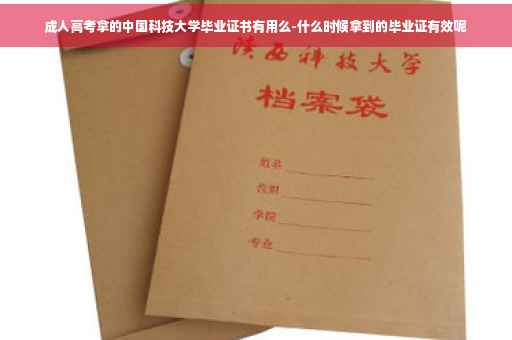 成人高考拿的中国科技大学毕业证书有用么-什么时候拿到的毕业证有效呢
陕西科技大学
档案袋
姓名
学院
专业